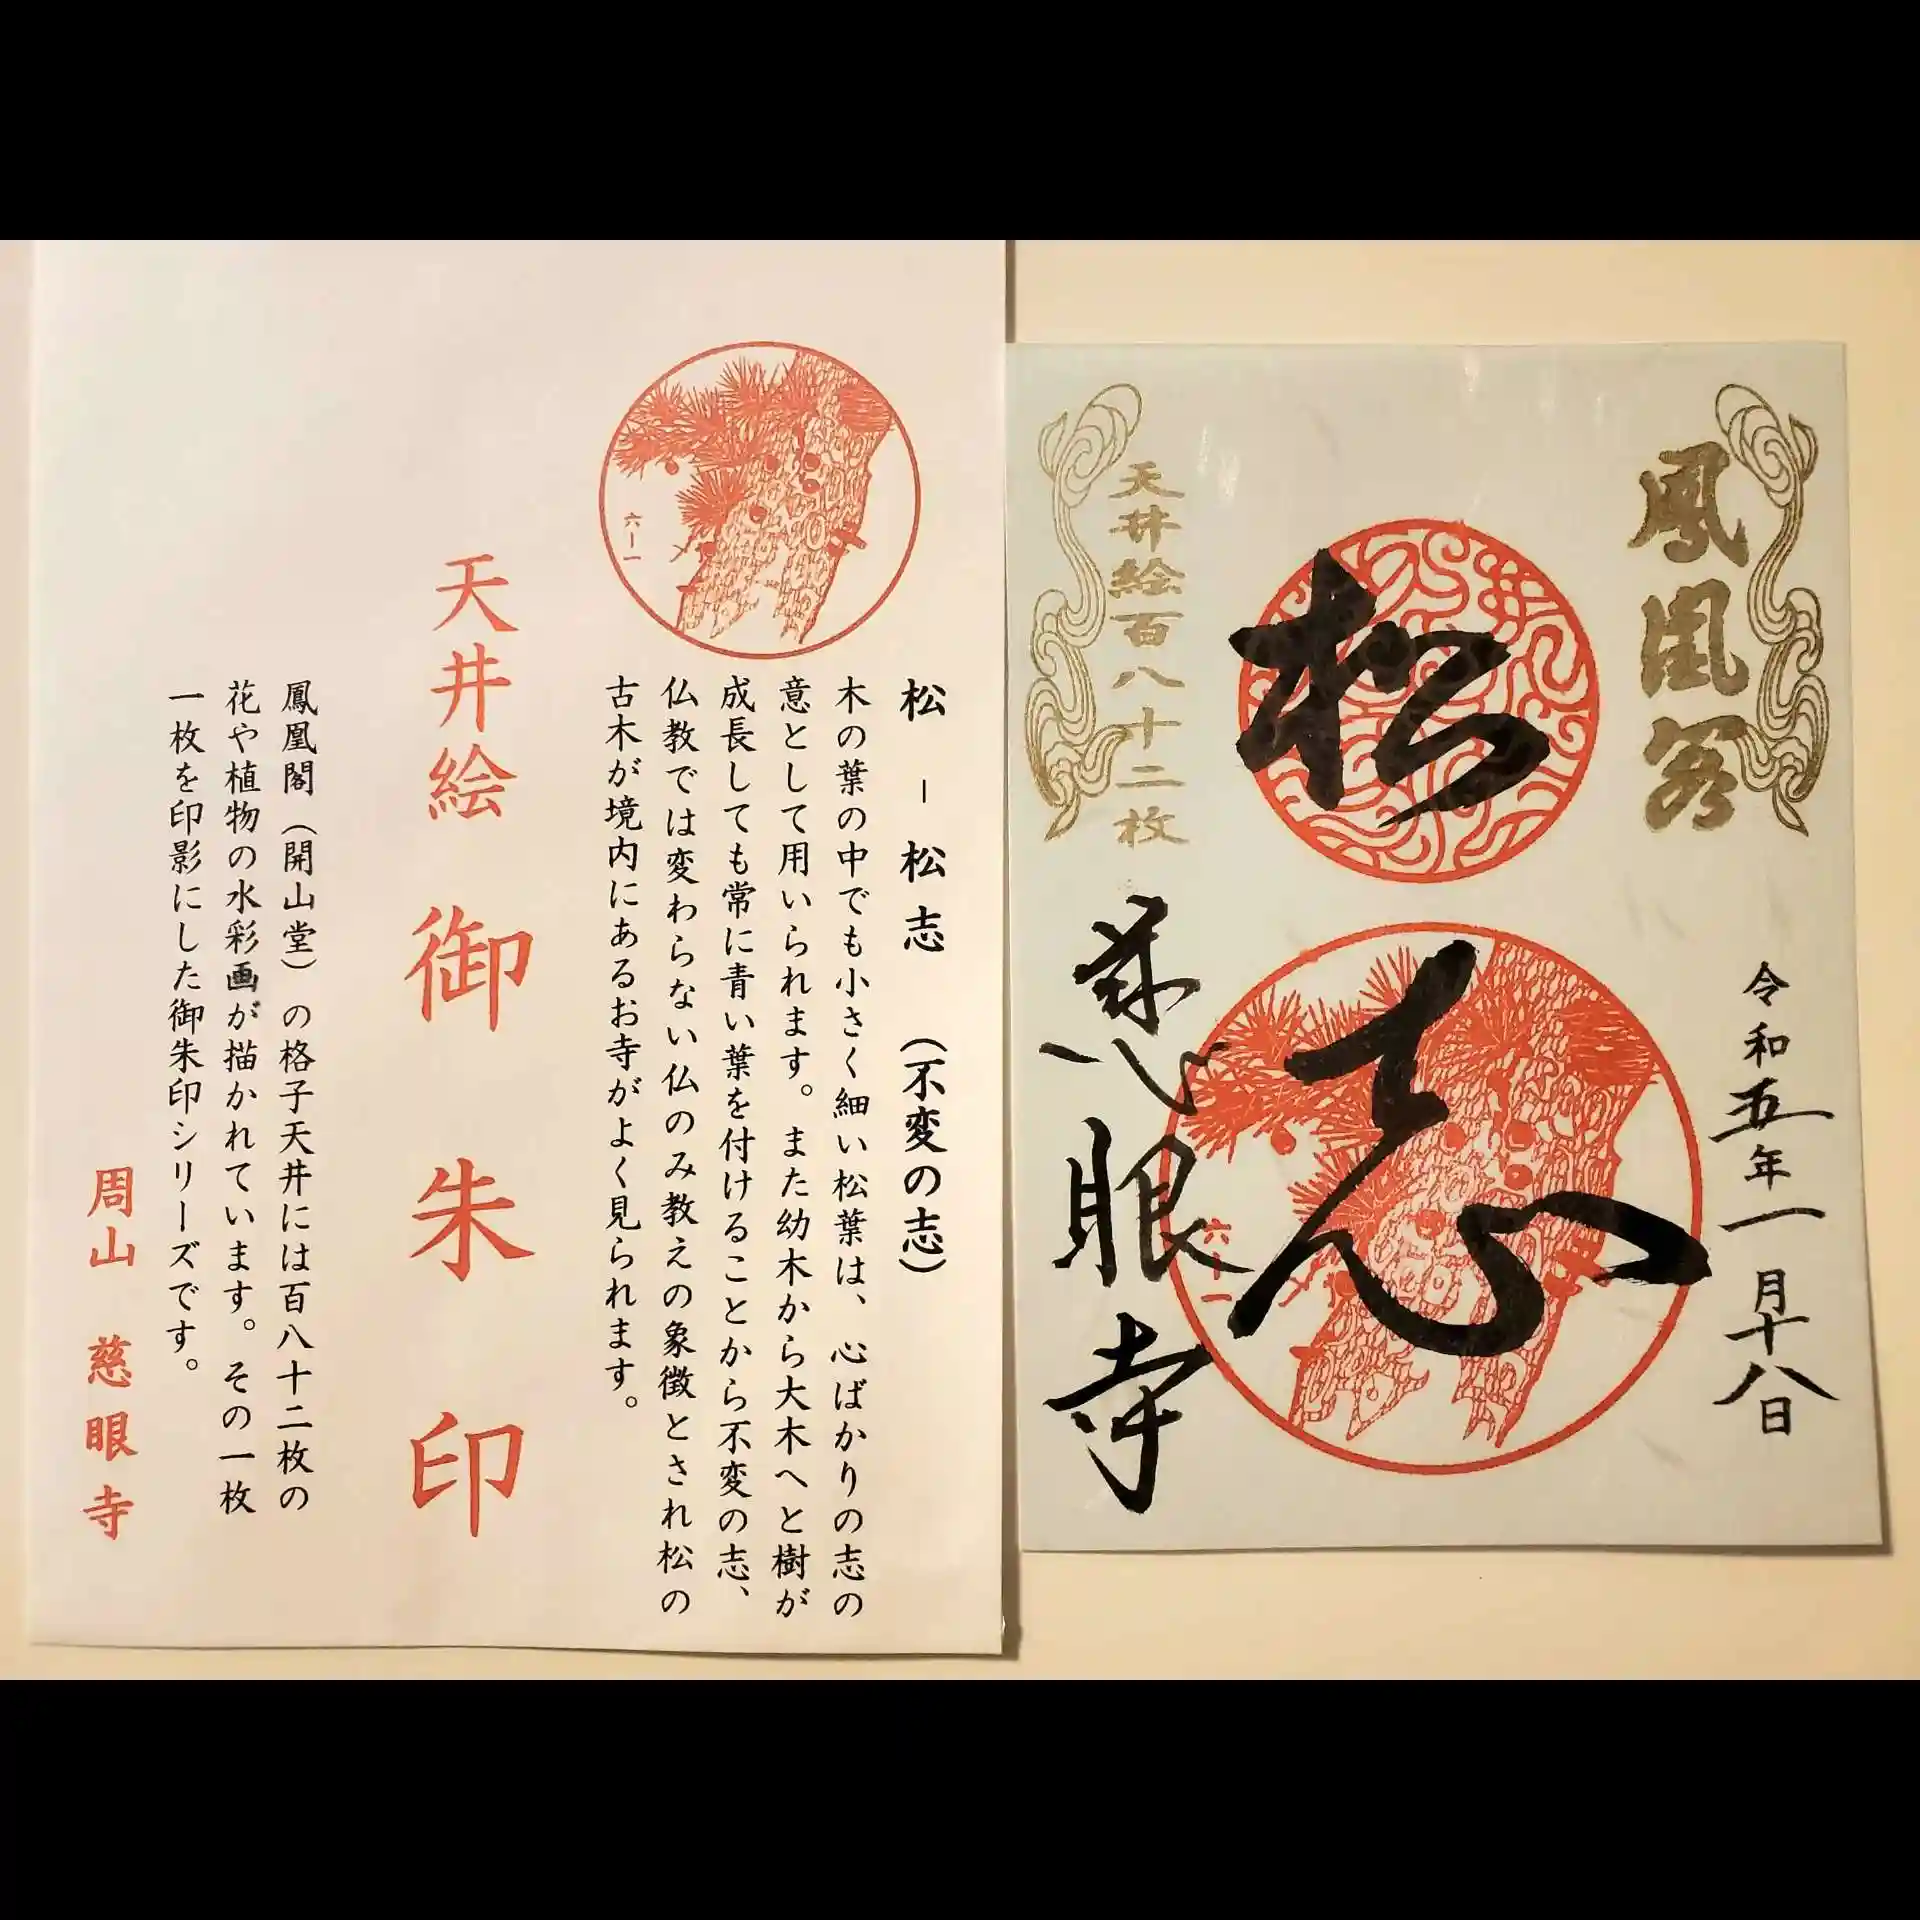 鳳凰閣
令和五年一月十八日
松
志
天井絵百八十二枚
慈眼寺
六ー一
六ー一
松 − 松志 (不変の志)
木の葉の中でも小さく細い松葉は、心ばかりの志の
意として用いられます。また幼木から大木へと樹が
成長しても常に青い葉を付けることから不変の志、
仏教では変わらない仏のみ教えの象徴とされ松の
古木が境内にあるお寺がよく見られます。
天井絵 御朱印
鳳凰閣(開山堂)の格子天井には百八十二枚の
花や植物の水彩画が描かれています。その一枚
一枚を印影にした御朱印シリーズです。
周山 慈眼寺